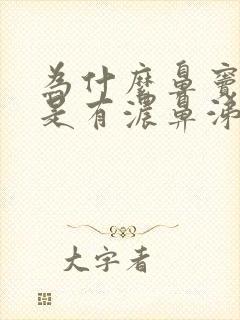 為什麼鼻竇
是有濃鼻涕
大字者